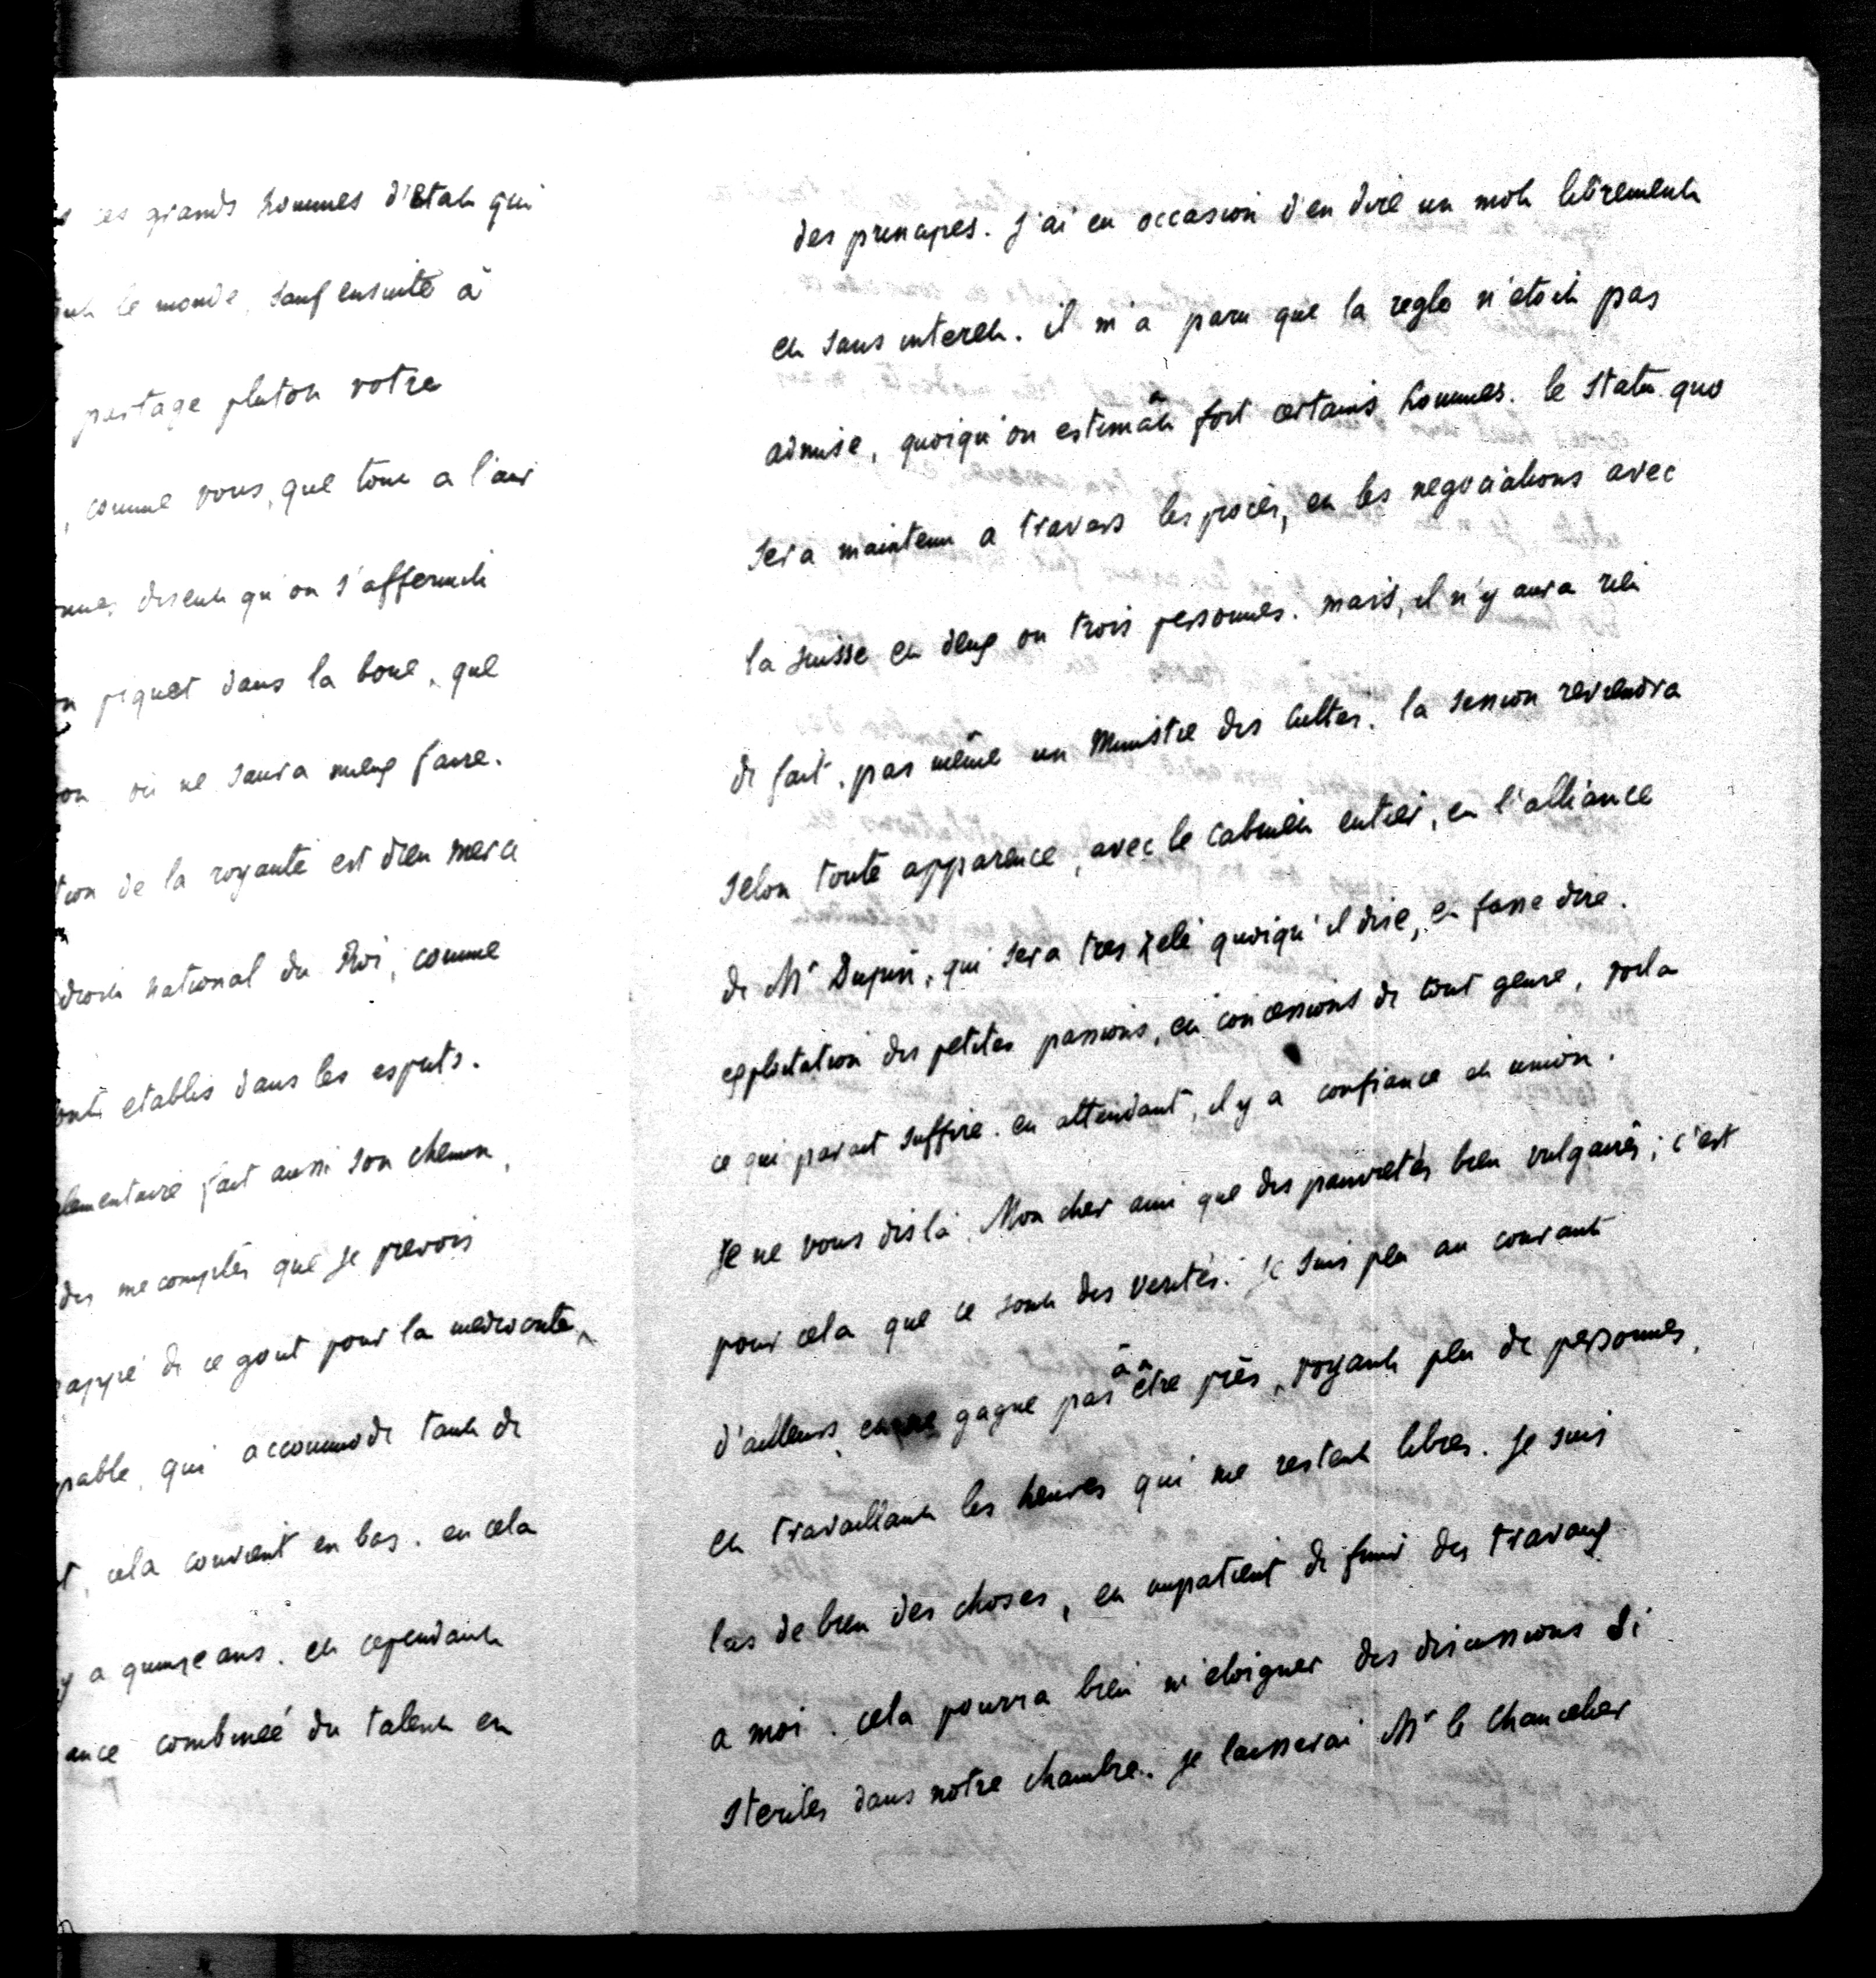 ces grands hommes d'Etat qui
le monde, sauf ensuite à
partage plutot votre
, comme vous, que tout a l'air
disent qu'on s'affermit
piquet dans la boue, que
on ne saura mieux faire.
tion de la royauté est dieu merci
droit national du Roi, comme
etablis dans les esprits.
lementaire fait aussi son chemin,
des mecomptes que je prevois
appé de ce gout pour la mediocrité,
pable, qui accommode tant de
t, cela convient en bas. en cela
y a quinze ans. et cependant
ance combineé du talent et
des principes. J'ai eu occasion d'en dire un mot librement
et sans interet. il m'a paru que la regle n'etoit pas
admise, quoiqu'on estimât fort certains hommes. le statu quo
sera maintenu a travers les procès, et les negociations avec
la suisse et deux ou trois personnes. mais, il n'y aura rien
de fait, pas même un Ministre des Cultes. la session reviendra
selon toute apparence, avec le Cabinet entier, et l'alliance
de Mr Dupin, qui sera tres zelé quoiqu'il dise, et fasse dire.
exploitation des petites passions, et concessions de tout genre, voila
ce qui parait suffire. en attendant, il y a confiance et union.
Je ne vous dis là, Mon cher ami que des pauvretés bien vulgaires; c'est
pour cela que ce sont des verités. Je suis peu au courant
d'ailleurs, et ne gagne pas à être près, voyant peu de personnes,
et travaillant les heures qui me restent libres. Je suis
las de bien des choses, et impatient de finir des travaux
a moi. cela pourra bien m'eloigner des discussions si
steriles dans notre chambre. Je laisserai Mr le Chancelier